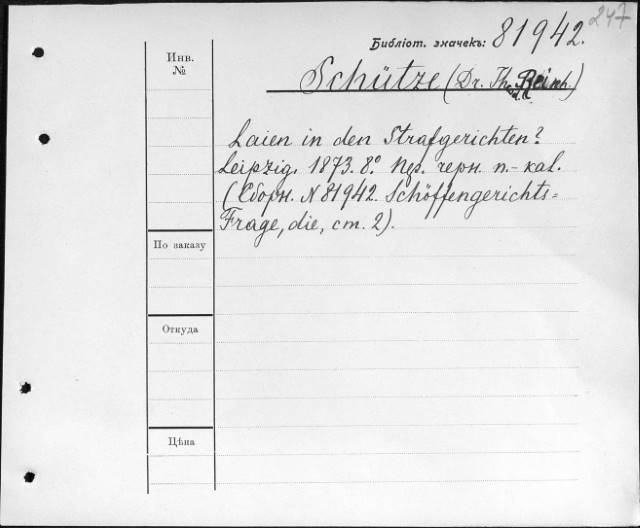 247
Библіот. значекъ: 81942.
Инв.
№
Schütze (Dr. Reinh.)
Laien in den Strafgerichten?
Leipzig. 1873. 8º. Пер. черн. п.-кал.
(Сборн. N 81942. Schöffengerichts-
Frage, die, ст. 2).
По заказу
Откуда
Цѣна